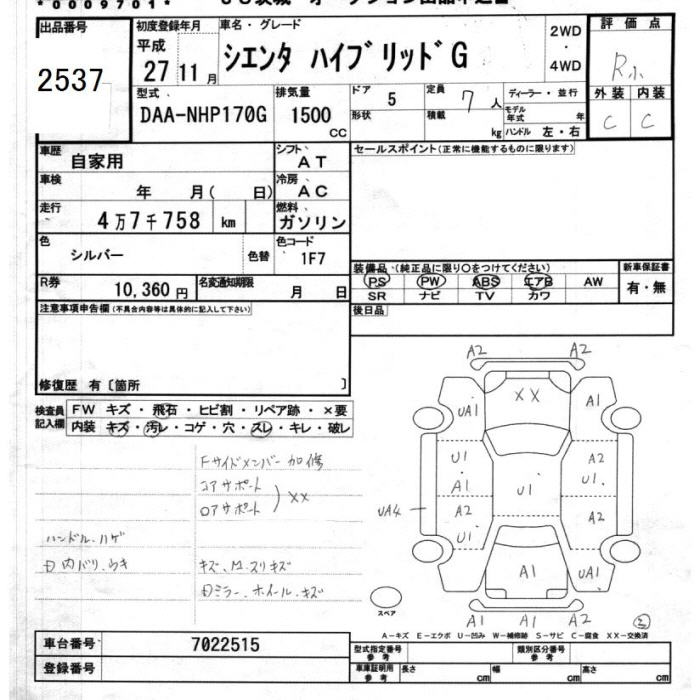 *0009701*
出品番号
2537
初度登録年月
平成
27 11 月
車名・グレード
シエンタ ハイブリッドG
2WD
・
4WD
評価点
R小
外装 内装
C C
型式
DAA-NHP170G
排気量
1500
CC
ドア
5
形状
定員
7 人
積載
kg
ディーラー・並行
モデル年式 年
ハンドル 左・右
車歴
自家用
シフト
AT
車検
年 月( 日)
冷房
AC
走行
4万7千758 km
燃料
ガソリン
色
シルバー
色替
色コード
1F7
R券
10,360円
名変通知期限
月 日
セールスポイント(正常に機能するものに限ります)
装備品(純正品に限り○をつけてください)
PS PW ABS エアB AW
SR ナビ TV カワ
新車保証書
有・無
後日品
注意事項申告欄(不具合内容等は具体的に記入して下さい)
修復歴 有〔箇所 〕
検査員
記入欄
FW キズ・飛石・ヒビ割・リペア跡・×要
内装 キズ・汚レ・コゲ・穴・スレ・キレ・破レ
Fサイドメンバー加修
コアサポート
ロアサポート
XX
ハンドル.ハゲ
内バリ.ウキ
キズ、M.スリキズ
ミラー.ホイール.キズ
A2 A2
XX
UA1 A1
U1 A2
A1 U1 U1.
A2 A2
U1
UA4
A1 UA1
A1 A1 A2
スペア
A-キズ E-エクボ U-凹み W-補修跡 S-サビ C-腐食 XX-交換済
車台番号
7022515
登録番号
型式指定番号
参考
類別区分番号
参考
車庫証明用
参考
長さ cm 幅 cm 高さ cm